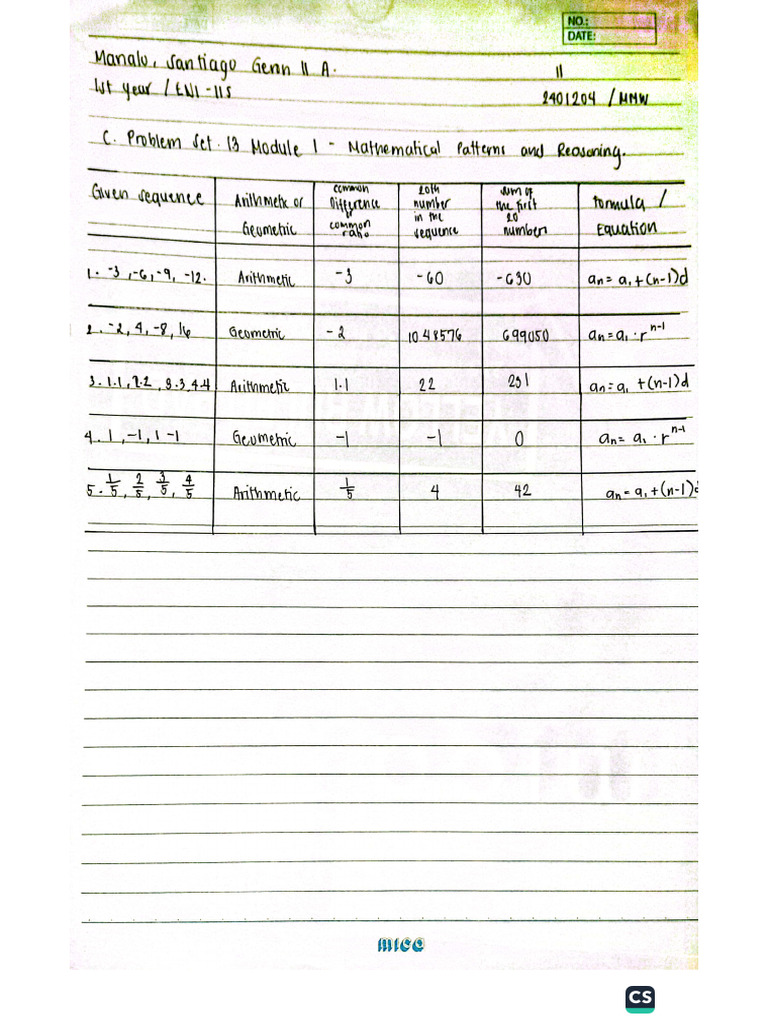 NO.:
DATE:
Manalo, Santiago Genn II A. 11
1st year / EN1-115 2401204 / MMW
C. Problem Set 13 Module 1 - Mathematical Patterns and Reasoning.
Given sequence Arithmetic or Geometric common Difference or common ratio 20th number in the sequence sum of the first 20 numbers Formula / Equation
1. -3, -6, -9, -12. Arithmetic -3 -60 -630 an = a1 + (n-1)d
2. -2, 4, -8, 16 Geometric -2 1048576 699050 an = a1 · r^n-1
3. 1.1, 2.2, 3.3, 4.4 Arithmetic 1.1 22 231 an = a1 + (n-1)d
4. 1, -1, 1 -1 Geometric -1 -1 0 an = a1 · r^n-1
5. 1/5, 2/5, 3/5, 4/5 Arithmetic 1/5 4 42 an = a1 + (n-1)d
mico
CS